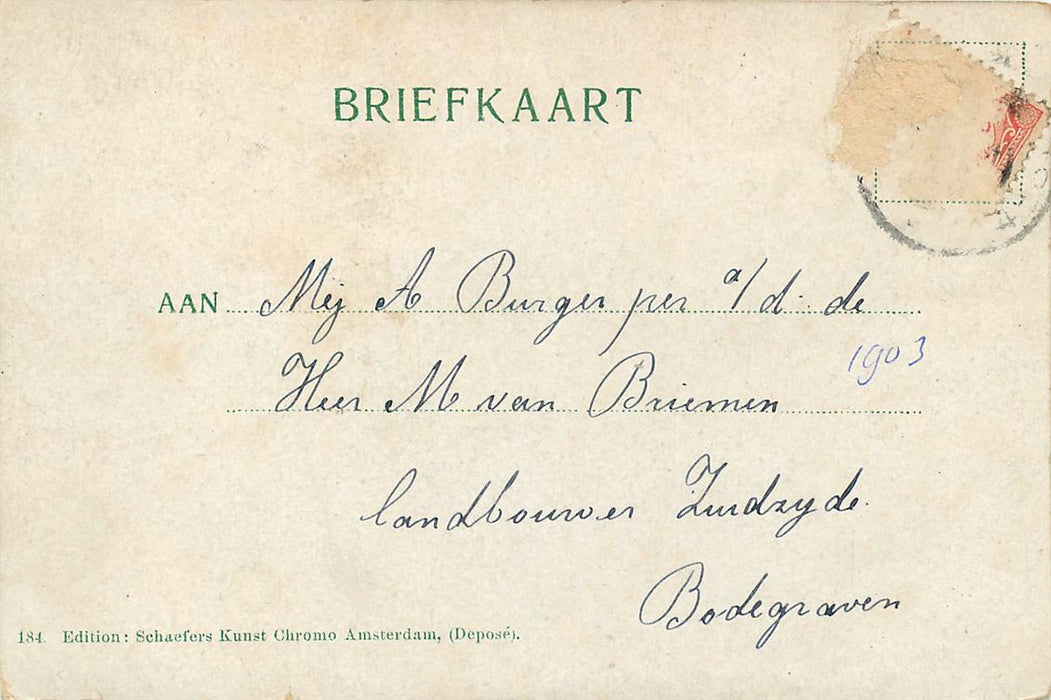 BRIEFKAART
AAN Mej A Burger per a/d. de
Heer M van Briemen
1903
landbouwer Zuidzyde.
Bodegraven
184. Edition: Schaefers Kunst Chromo Amsterdam, (Deposé).